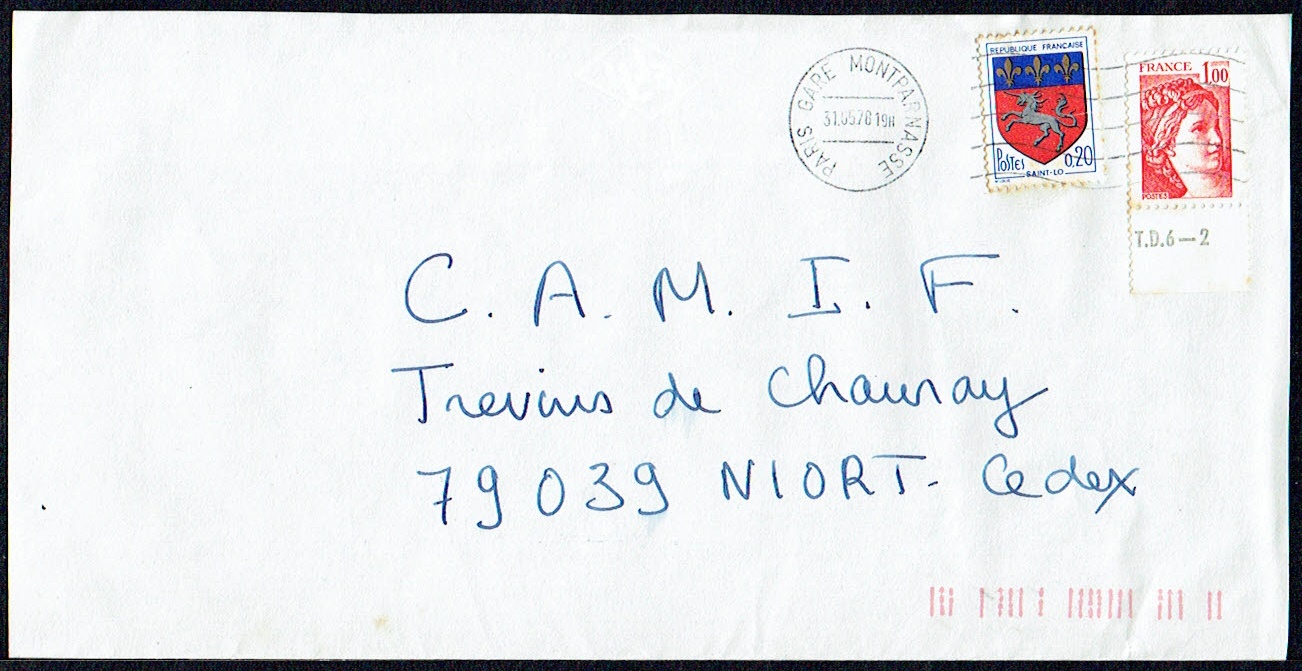 PARIS GARE MONTPARNASSE
31.05.78 19H
REPUBLIQUE FRANÇAISE
POSTES 0,20
SAINT-LO
FRANCE 1,00
POSTES
T.D.6-2
C. A. M. I. F.
Trevins de Chauray
79039 NIORT- Cedex